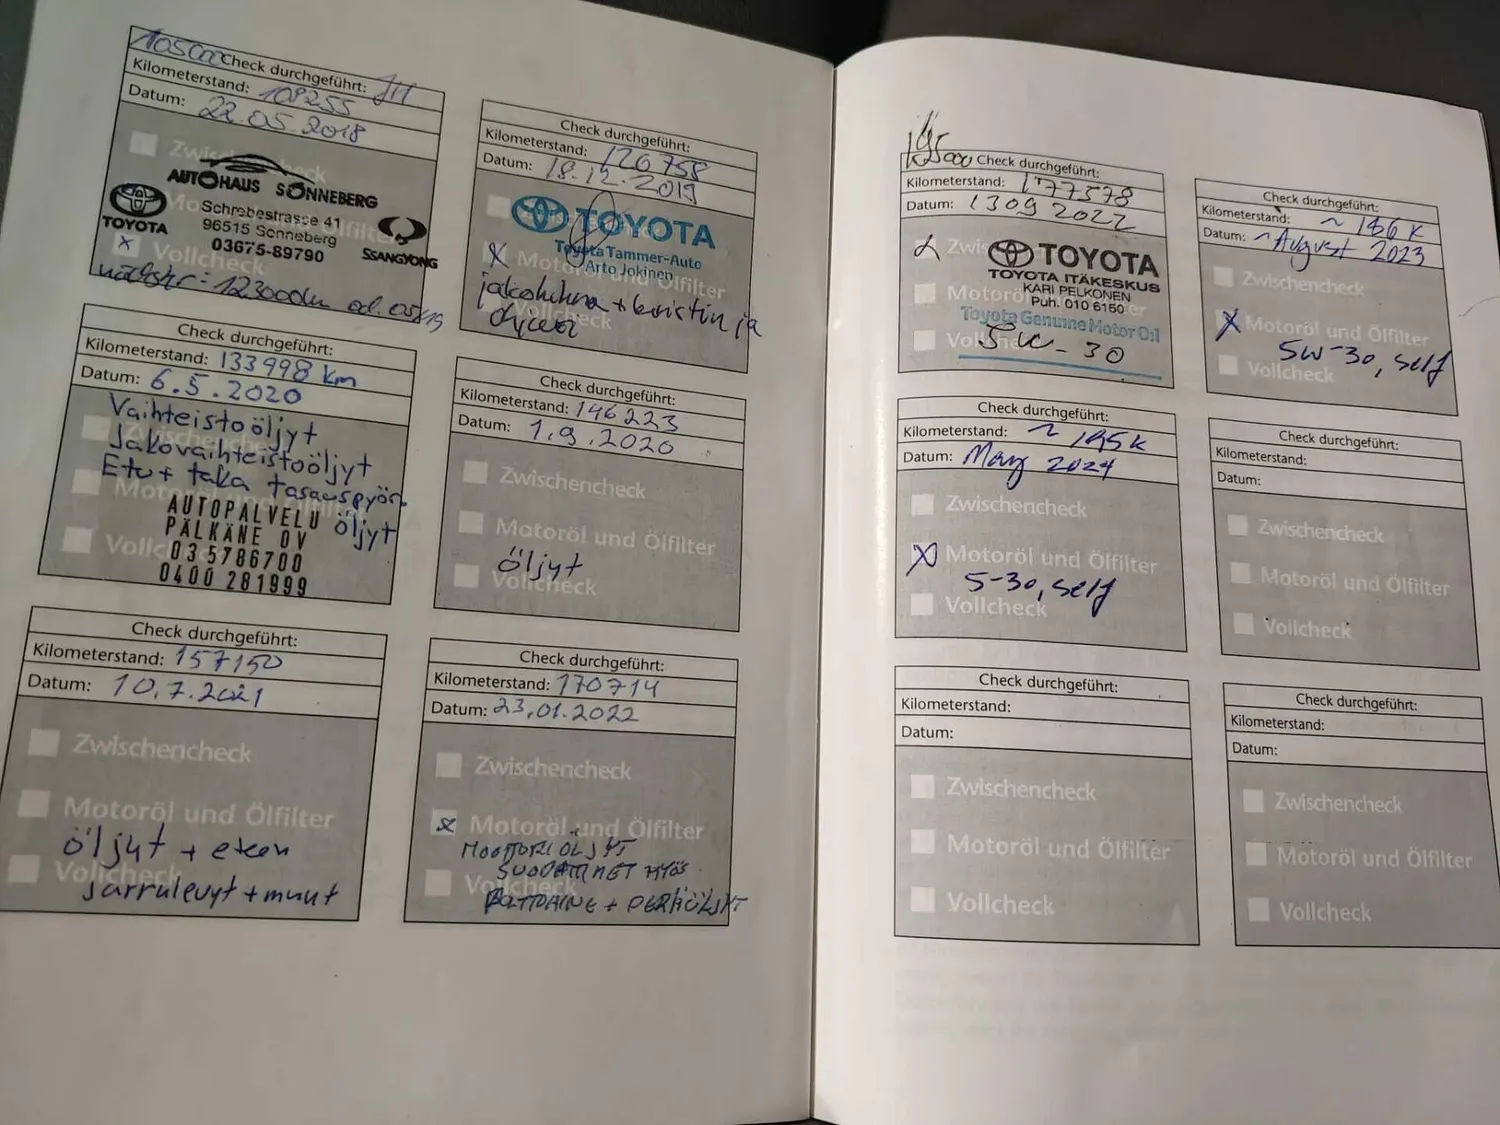 105000 Check durchgeführt: JH
Kilometerstand: 108255
Datum: 22.05.2018
Zwischencheck
AUTOHAUS SONNEBERG
Schrebestrasse 41
96515 Sonneberg
03675-89790
TOYOTA
SSANGYONG
x Vollcheck
nächster: 123000km od. 05/19
Check durchgeführt:
Kilometerstand: 126758
Datum: 18.12.2019
TOYOTA
Toyota Tammer-Auto
Arto Jokinen
x Motoröl und Ölfilter
jakohihna +
Vollcheck
Check durchgeführt:
Kilometerstand: 133998 km
Datum: 6.5.2020
Vaihteistoöljyt
Jakovaihteistoöljyt
Etu + taka tasauspyör.
öljyt
AUTOPALVELU
PÄLKÄNE OY
03 5786700
0400 281999
Check durchgeführt:
Kilometerstand: 146223
Datum: 1.9.2020
Zwischencheck
Motoröl und Ölfilter
öljyt
Vollcheck
Check durchgeführt:
Kilometerstand: 157150
Datum: 10.7.2021
Zwischencheck
Motoröl und Ölfilter
öljyt + eteen
Vollcheck
Jarrulevyt + muut
Check durchgeführt:
Kilometerstand: 170714
Datum: 23.01.2022
Zwischencheck
x Motoröl und Ölfilter
MOOTTORIÖLJYT
SUODATTIMET MYÖS
Vollcheck
+ PERÄÖLJYT
195000 Check durchgeführt:
Kilometerstand: 177578
Datum: 1309 2022
TOYOTA
TOYOTA ITÄKESKUS
KARI PELKONEN
Puh. 010 6150
Toyota Genuine Motor Oil
5W-30
Check durchgeführt:
Kilometerstand: ~ 186k
Datum: ~August 2023
Zwischencheck
x Motoröl und Ölfilter
5W-30, self
Vollcheck
Check durchgeführt:
Kilometerstand: ~ 195k
Datum: May 2024
Zwischencheck
x Motoröl und Ölfilter
5-30, self
Vollcheck
Check durchgeführt:
Kilometerstand:
Datum:
Zwischencheck
Motoröl und Ölfilter
Vollcheck
Check durchgeführt:
Kilometerstand:
Datum:
Zwischencheck
Motoröl und Ölfilter
Vollcheck
Check durchgeführt:
Kilometerstand:
Datum:
Zwischencheck
Motoröl und Ölfilter
Vollcheck